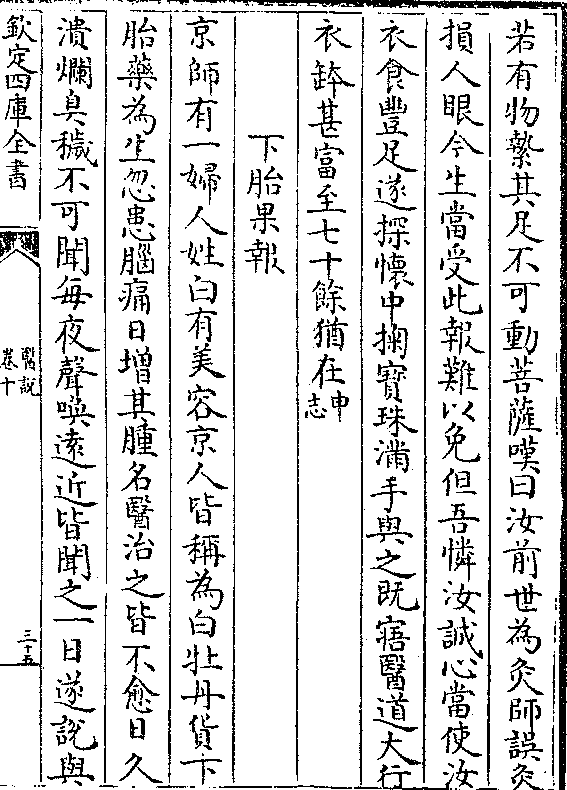 若有物縶其足不可動菩薩嘆曰汝前世為灸師誤灸
損人眼今生當受此報難以免但吾憐汝誠心當使汝
衣食豐足遂探懷中掬寶珠滿手與之既寤醫道大行
衣鉢甚富至七十餘猶在申志
下胎果報
京師有一婦人姓白有美容京人皆稱為白牡丹貨下
胎藥為生忽患腦痛日增其腫名醫治之皆不愈日久
潰爛臭穢不可聞每夜聲喚遠近皆聞之一日遂說與
欽定四庫全書
醫說
卷十
三十五